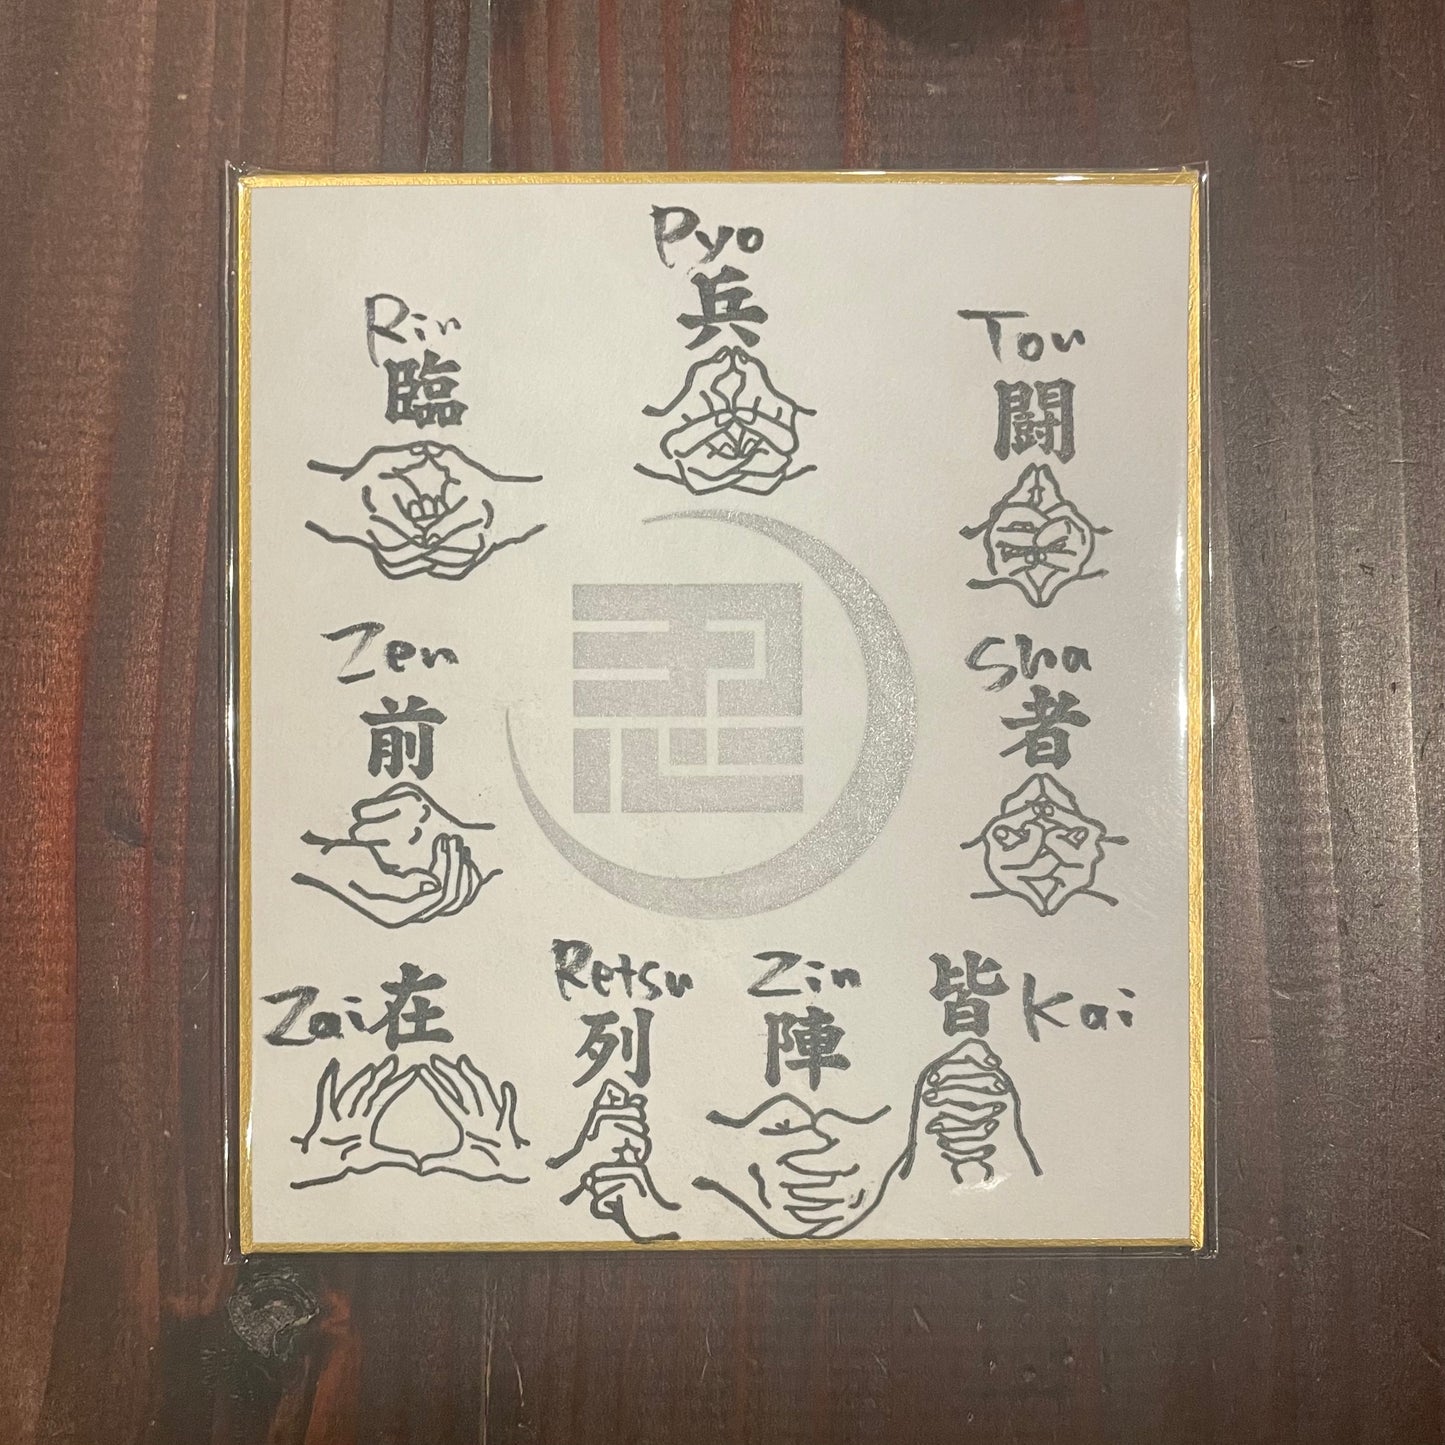 Rin
臨
Pyo
兵
Tou
闘
Sha
者
Kai
皆
Zin
陣
Retsu
列
Zai
在
Zen
前
忍